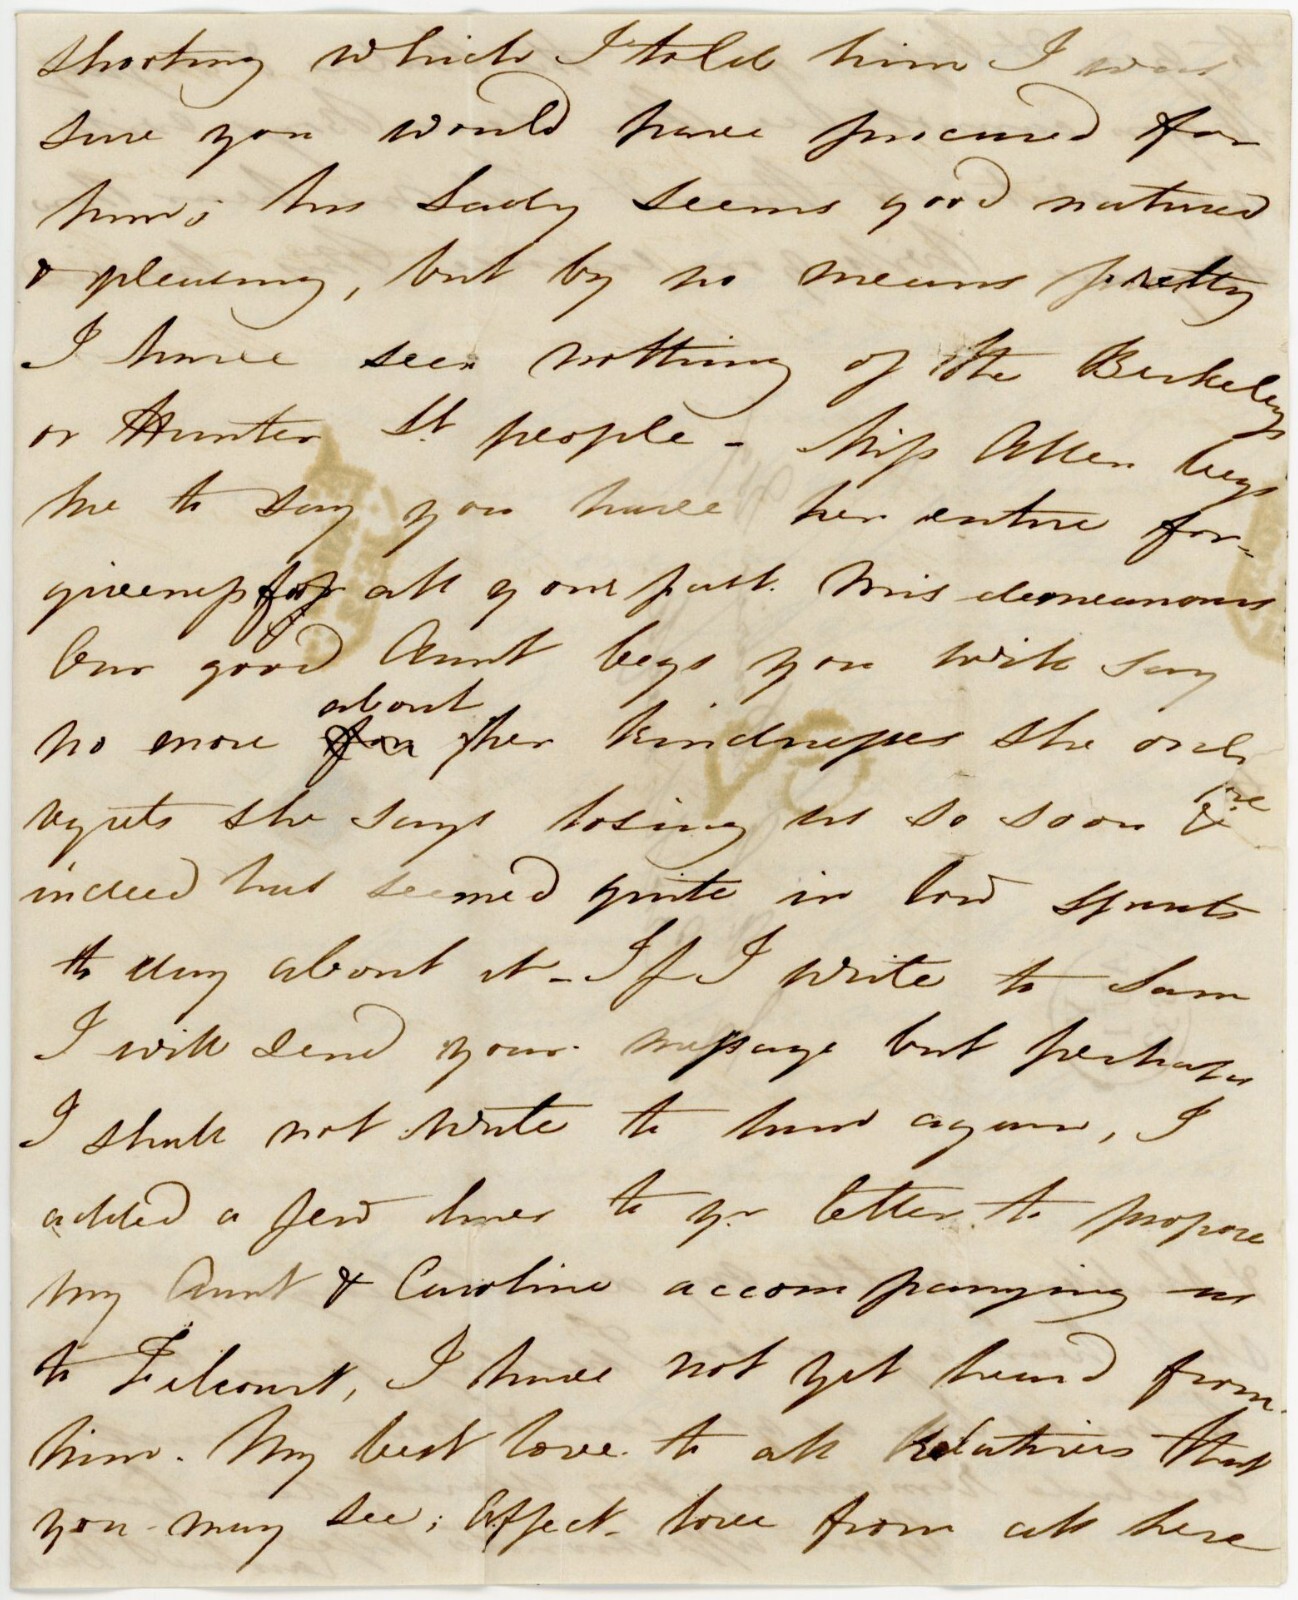 shooting which I told him I was
sure you would have procured for
him; his Lady seems good natured
& pleasing, but by no means pretty
I have seen nothing of the Berkeleys
or Hunter St people - Miss Allen begs
me to say you have her entire for-
giveness for all your past misdemeanours
Our good Aunt begs you will say
about
no more for her kindnesses she only
regrets she says losing us so soon &
indeed has seemed quite in low spirits
to day about it - If I write to Sam
I will send your message but perhaps
I shall not write to him again, I
added a few lines to yr letter to propose
my Aunt & Caroline accompanying us
to Filcourt, I have not yet heard from
him. My best love to all Relatives that
you may see; Affect. love from all here